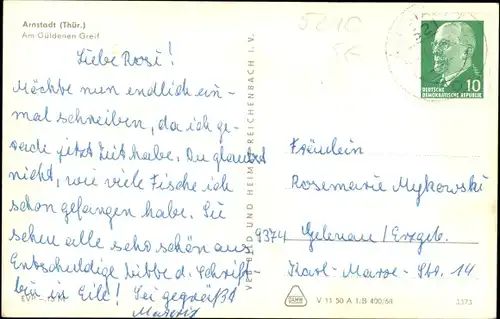 Arnstadt (Thür.)
Am Güldenen Greif
Liebe Rosi!
Möchte nun endlich ein-
mal schreiben, da ich ge-
rade jetzt Zeit habe. Du glaubst
nicht, wie viele Fische ich
schon gefangen habe. Sie
sehen alle scho schön aus.
Entschuldige bitte d. Schrift-
bin in Eile! Sei gegrüßt
VERLAG BILD UND HEIMAT REICHENBACH I. V.
DEUTSCHE
DEMOKRATISCHE REPUBLIK
10
Fräulein
Rosemarie Mykowski
9374 Gelenau/Erzgeb.
Karl-Marx-Str. 14
V 11 50 A 1/B 400/68